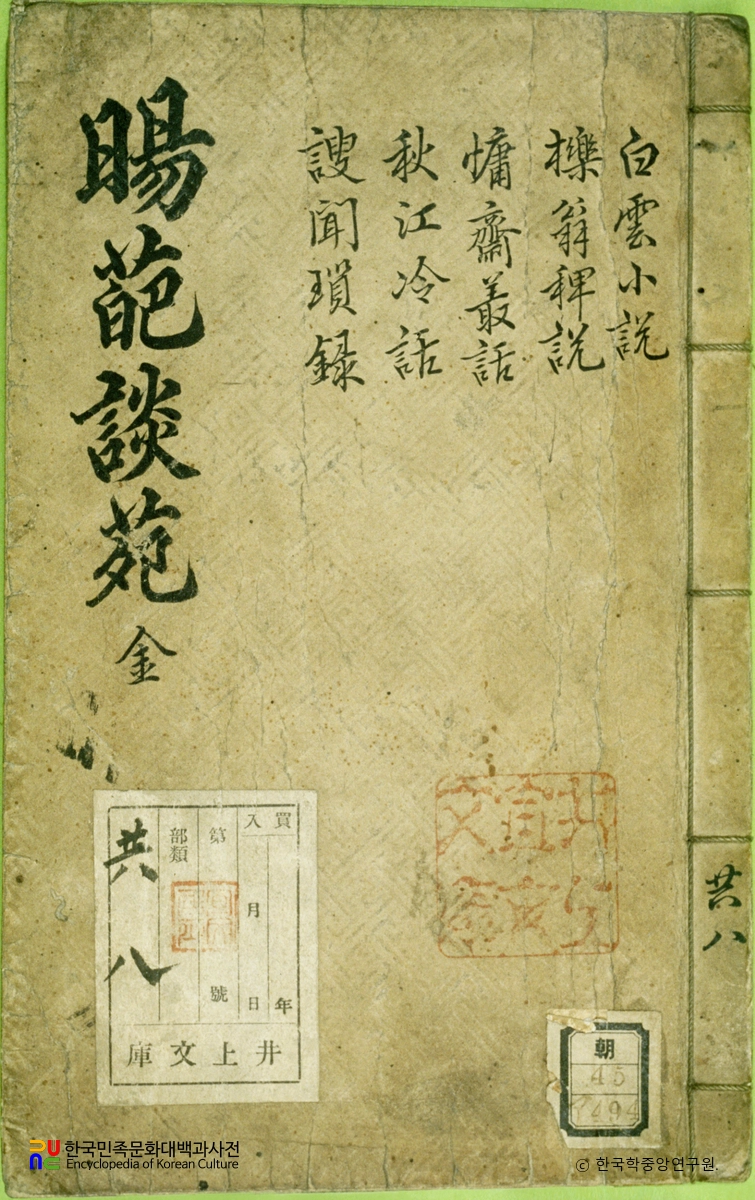 共八
白雲小説
櫟翁稗説
慵齋叢話
秋江冷話
謏聞瑣録
暘葩談苑 金
買入
年
月 日
第 號
部類
共八
井上文庫
朝
45
한국민족문화대백과사전
Encyclopedia of Korean Culture
© 한국학중앙연구원.